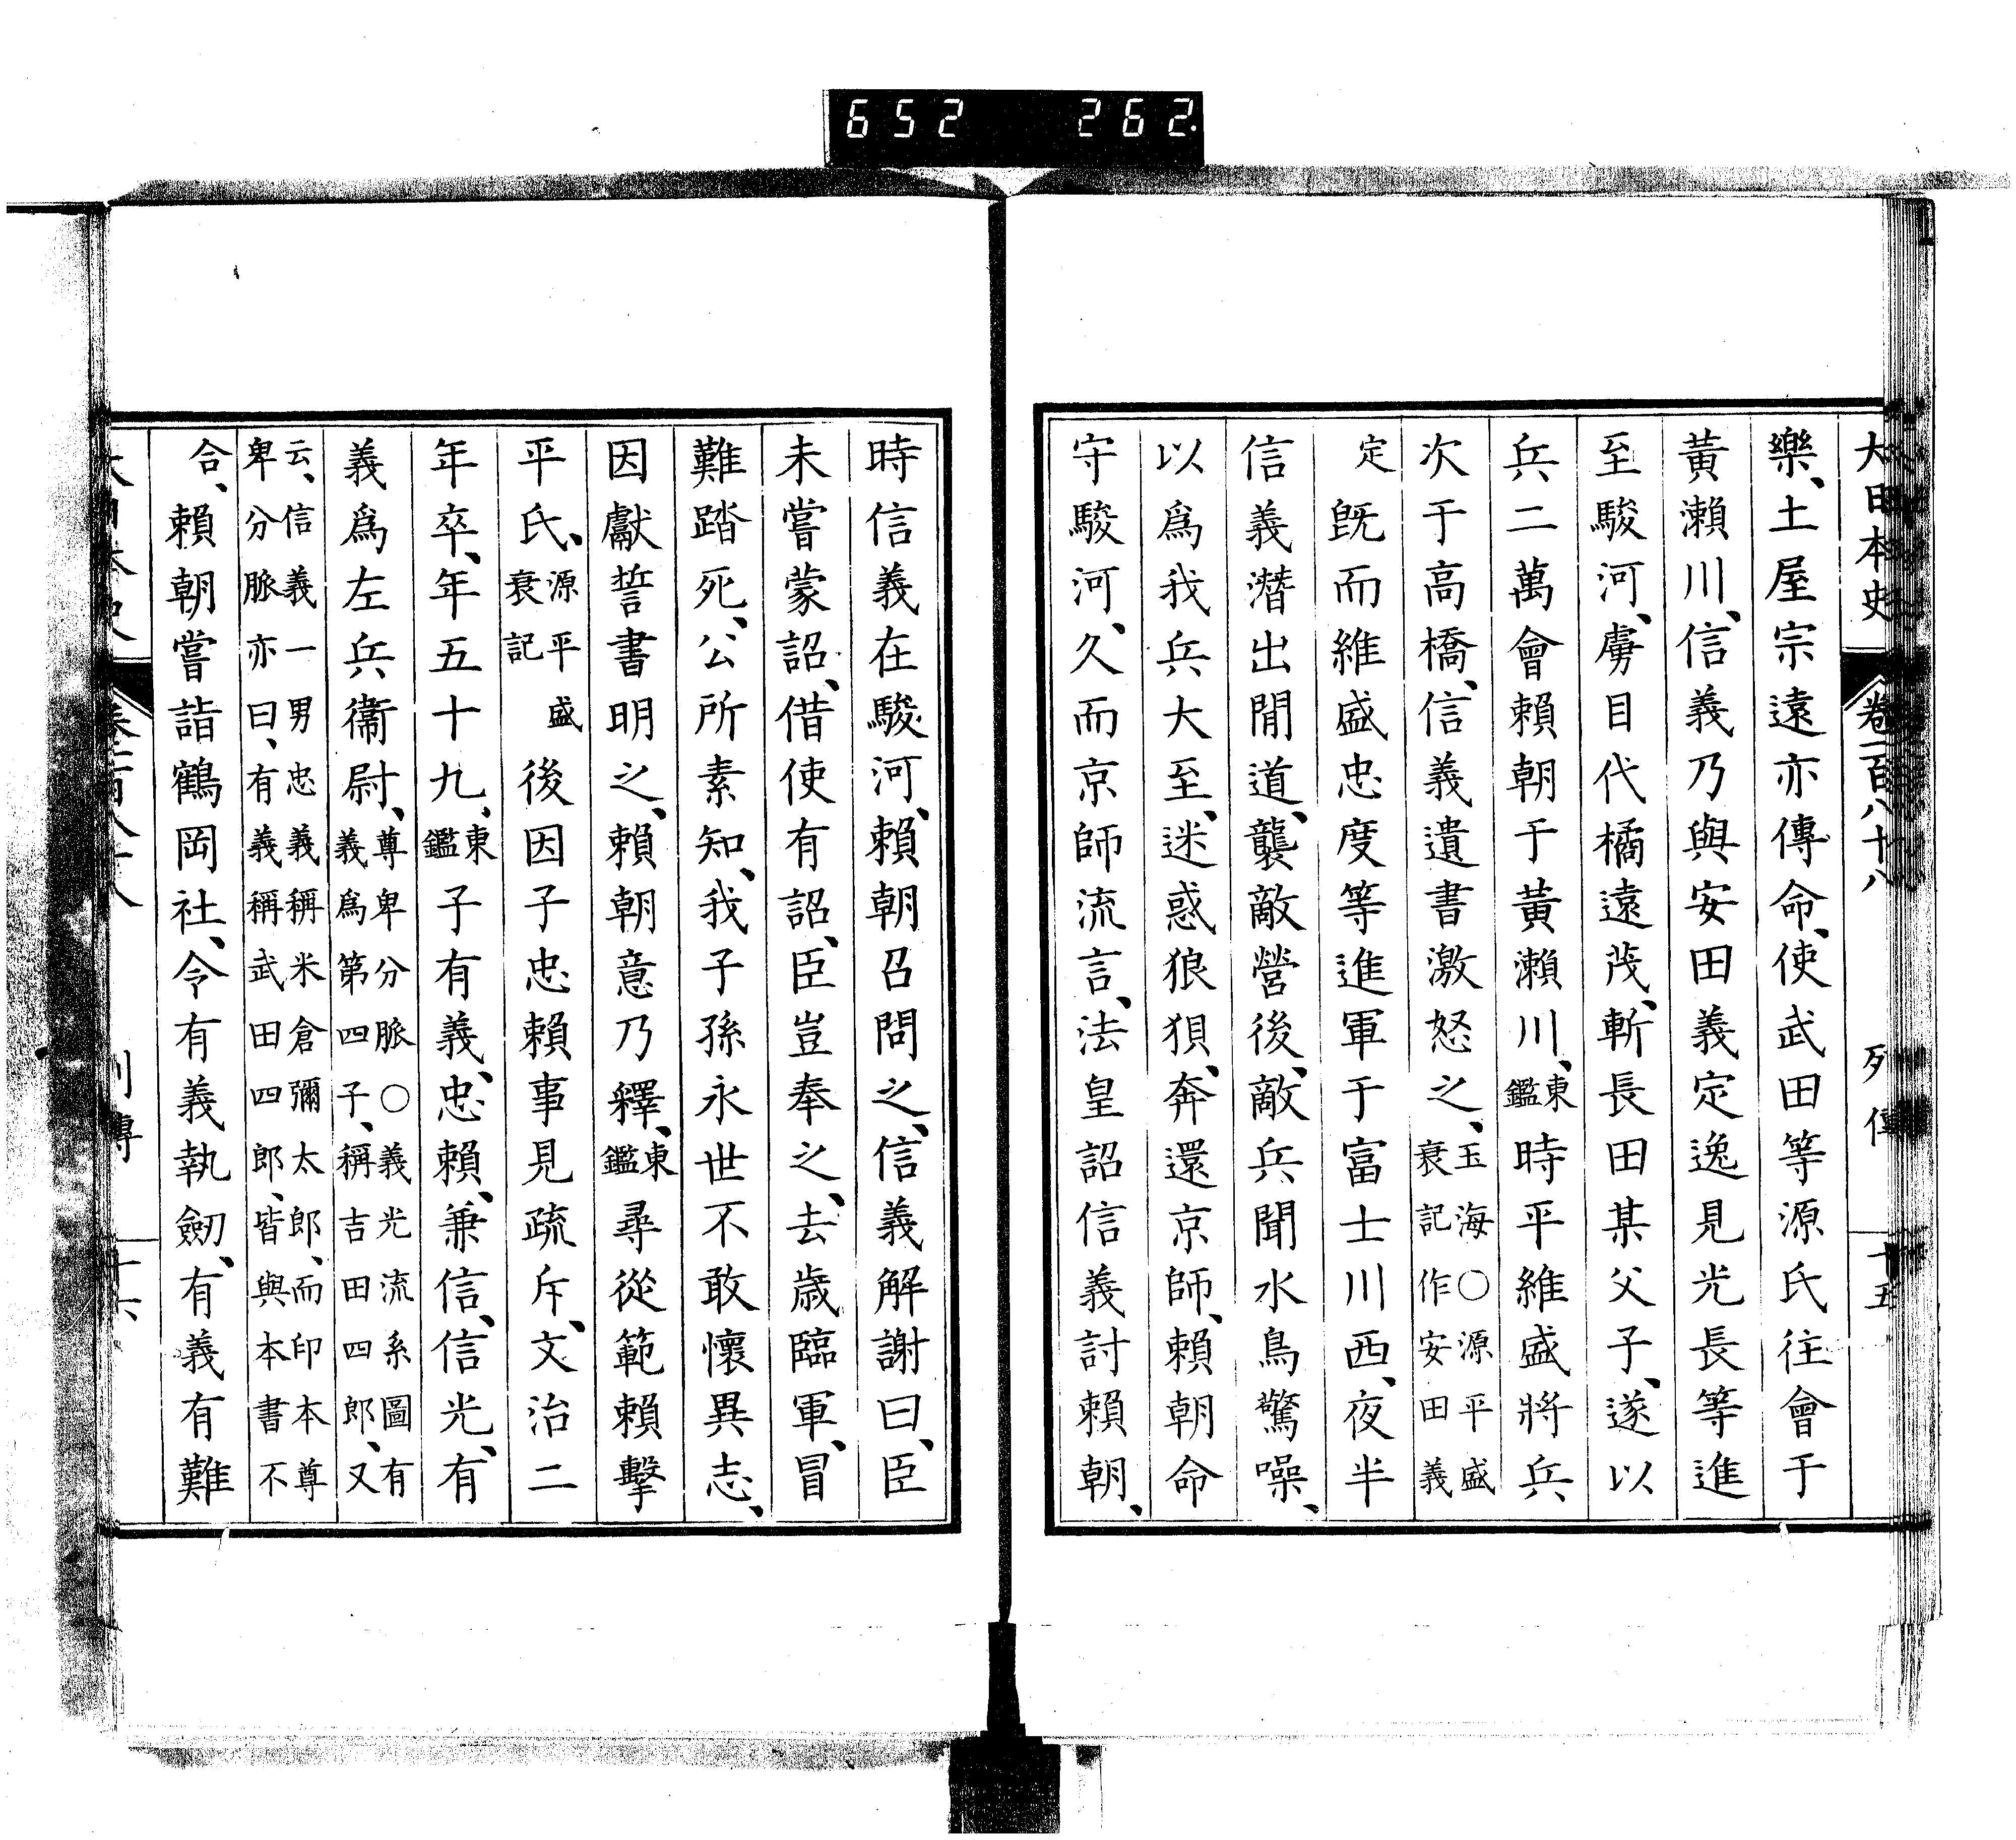 652 262.
大日本史 卷一百八十八 列傳 十五
樂、土屋宗遠亦傳命、使武田等源氏往會于
黃瀨川、信義乃與安田義定逸見光長等進
至駿河、虜目代橘遠茂、斬長田某父子、遂以
兵二萬會賴朝于黃瀨川、東鑑時平維盛將兵
次于高橋、信義遺書激怒之、玉海○源平盛衰記作安田義
定既而維盛忠度等進軍于富士川西、夜半
信義潛出閒道、襲敵營後、敵兵聞水鳥驚噪、
以爲我兵大至、迷惑狼狽、奔還京師、賴朝命
守駿河、久而京師流言、法皇詔信義討賴朝、
時信義在駿河、賴朝召問之、信義解謝曰、臣
未嘗蒙詔、借使有詔、臣豈奉之、去歲臨軍、冒
難踏死、公所素知、我子孫永世不敢懷異志、
因獻誓書明之、賴朝意乃釋、東鑑尋從範賴擊
平氏、源平盛衰記後因子忠賴事見疏斥、文治二
年卒、年五十九、東鑑子有義、忠賴、兼信、信光、有
義爲左兵衞尉、尊卑分脈○義光流系圖有義爲第四子、稱吉田四郎、又
云、信義一男忠義稱米倉彌太郎、而印本尊卑分脈亦曰、有義稱武田四郎、皆與本書不
合、賴朝嘗詣鶴岡社、令有義執劒、有義有難